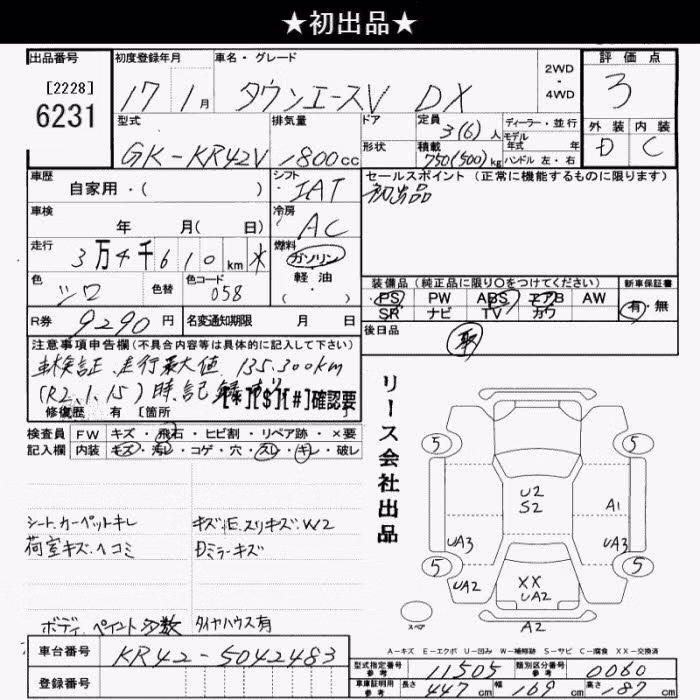 ★初出品★
出品番号 初度登録年月 車名・グレード 2WD ・ 4WD 評価点
[2228] 6231 17 1月 タウンエースV DX 3
型式 排気量 ドア 定員 3(6)人 ディーラー・並行 外装 内装
GK-KR42V 1800cc 形状 積載 750(500)kg モデル年式 年 ハンドル 左・右 D C
車歴 自家用・( ) シフト IAT セールスポイント(正常に機能するものに限ります)
初出品
車検 年 月( 日) 冷房 AC
走行 3万4千610km * 燃料 ガソリン・軽油・( )
色 シロ 色替 色コード 058
装備品(純正品に限り○をつけてください) 新車保証書
PS PW ABS エアB AW 有・無
SR ナビ TV カワ
R券 9290円 名変通知期限 月 日 後日品 取
注意事項申告欄(不具合内容等は具体的に記入して下さい)
車検証 走行最大値 135,300km
(R2.1.15)時記
[*][$][#]確認要
修復歴 有 [箇所
リース会社出品
検査員記入欄 FW キズ・飛石・ヒビ割・リペア跡・×要
内装 キズ・汚レ・コゲ・穴・スレ・キレ・破レ
シート、カーペットキレ キズ
荷室キズ、ヘコミ Dミラーキズ
ボディ、ペイント多数 タイヤハウス有
5 5
U2
S2 A1
UA3 UA3
5 5
UA2 XX
UA2 UA2
スペア A2
A-キズ E-エクボ U-凹み W-補修跡 S-サビ C-腐食 XX-交換済
車台番号 KR42-5042483
登録番号
型式指定番号 参考 11505 類別区分番号 参考 0060
車庫証明用 参考 長さ 447cm 幅 169cm 高さ 187cm